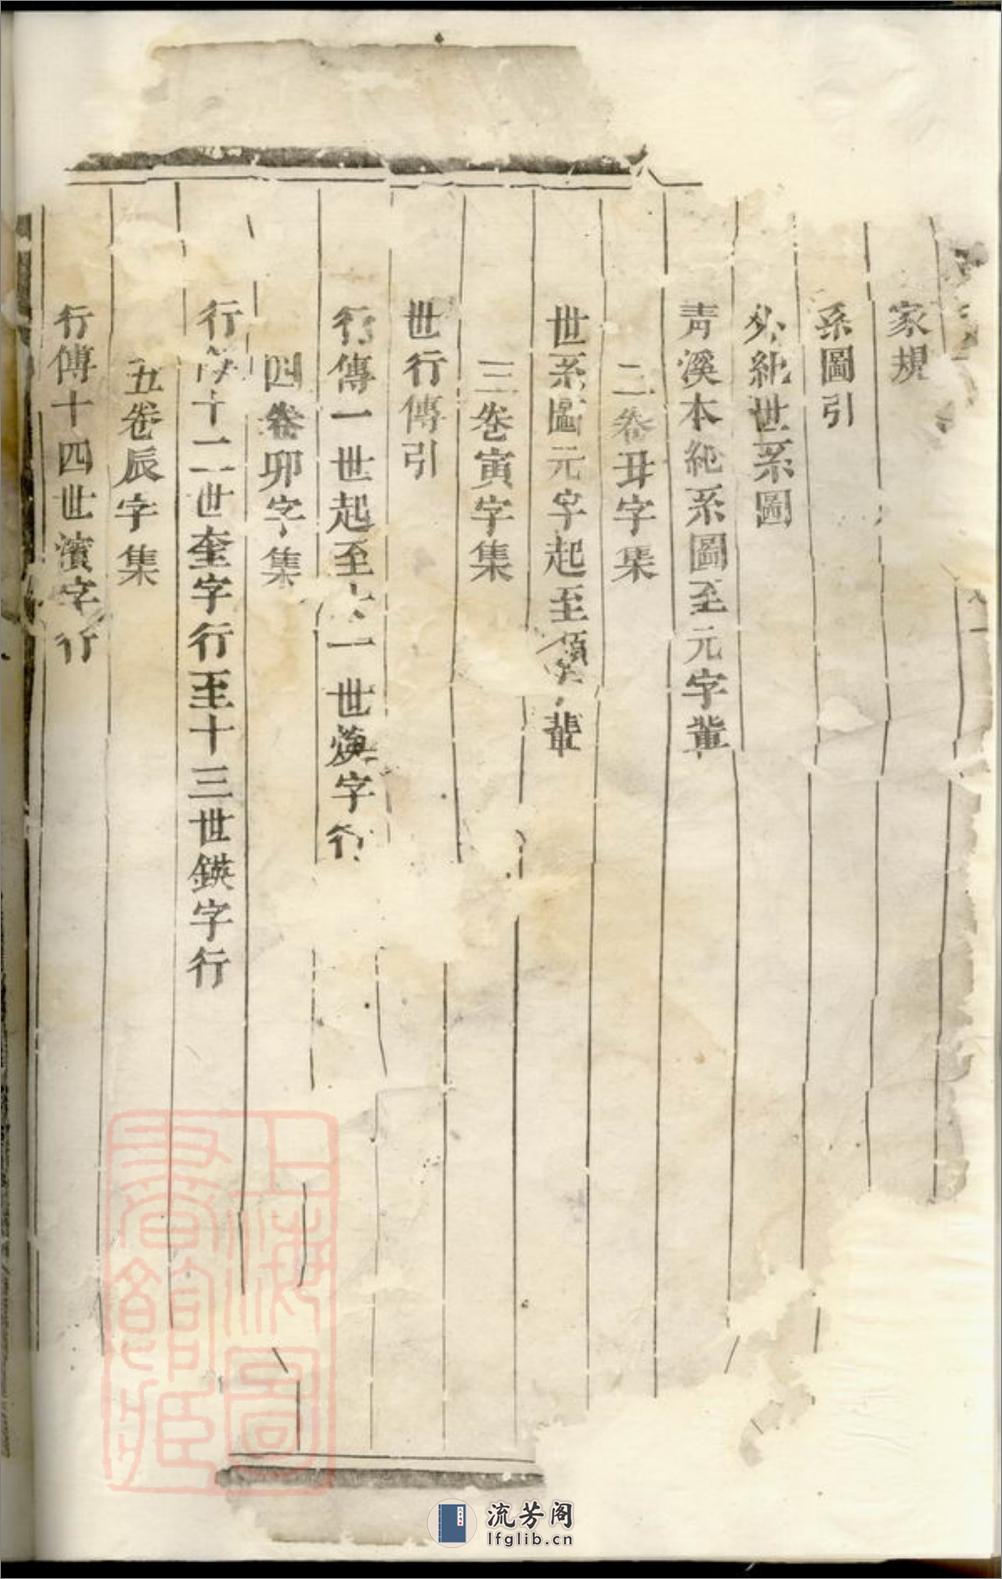 家規
系圖引
外紀世系圖
青溪本紀系圖至元字輩
二卷丑字集
世系圖元字起至 輩
三卷寅字集
世行傳引
行傳一世起至十一世 字行
四卷卯字集
行傳十二世奎字行至十三世鍈字行
五卷辰字集
行傳十四世濱字行
上海圖書館藏
流芳阁
lfglib.cn